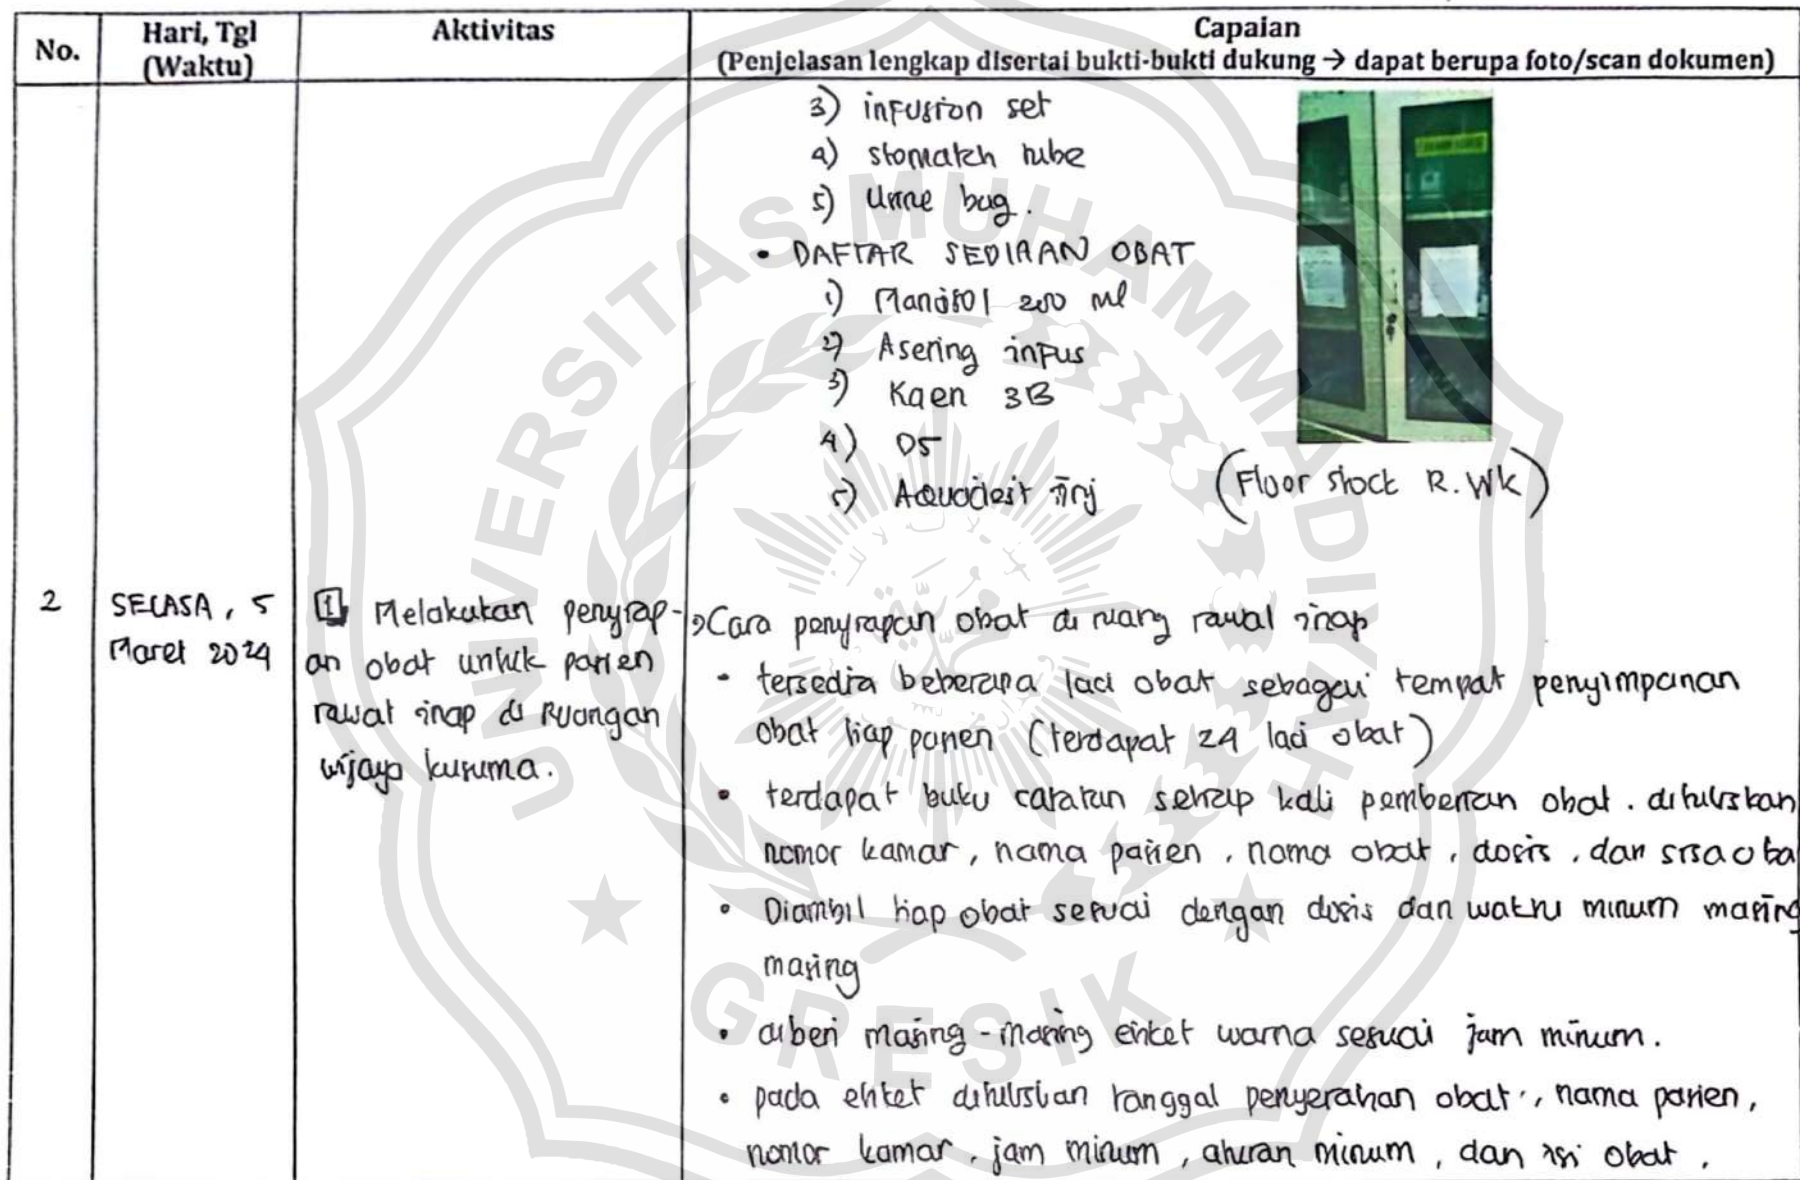 No.
Hari, Tgl
(Waktu)
Aktivitas
Capaian
(Penjelasan lengkap disertai bukti-bukti dukung → dapat berupa foto/scan dokumen)
3) infusion set
4) stomatch tube
5) Urine bag.
• DAFTAR SEDIAAN OBAT
1) Manitol 250 ml
2) Asering infus
3) Kaen 3B
4) D5
5) Aquadest inj
(Floor stock R. WK)
2
SELASA, 5
Maret 2024
1 Melakukan penyiap-
an obat untuk pasien
rawat inap di Ruangan
wijaya kusuma.
Cara penyiapan obat di ruang rawat inap
• tersedia beberapa laci obat sebagai tempat penyimpanan
obat tiap pasien (terdapat 24 laci obat)
• terdapat buku catatan setiap kali pemberian obat. dituliskan
nomor kamar, nama pasien, nama obat, dosis, dan sisa oba
• Diambil tiap obat sesuai dengan dosis dan waktu minum masing
masing
• diberi masing-masing etiket warna sesuai jam minum.
• pada etiket dituliskan tanggal penyerahan obat, nama pasien,
nomor kamar, jam minum, aturan minum, dan isi obat.
UNIVERSITAS MUHAMMADIYAH
GRESIK